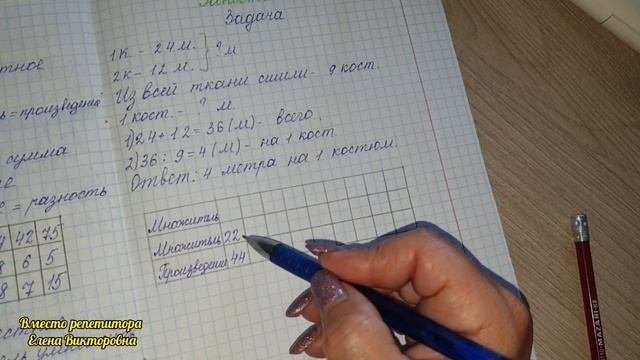 Задача
1к. - 24 м. } ? м
2к - 12 м.
Из всей ткани сшили - 9 кост.
1 кост. - ? м.
1) 24 + 12 = 36 (м) - всего.
2) 36 : 9 = 4 (м) - на 1 кост.
Ответ: 4 метра на 1 костюм.
Множитель
Множитель 22
Произведение 44
= произведение
сумма
= разность
42 75
6 5
7 15
Вместо репетитора
Елена Викторовна